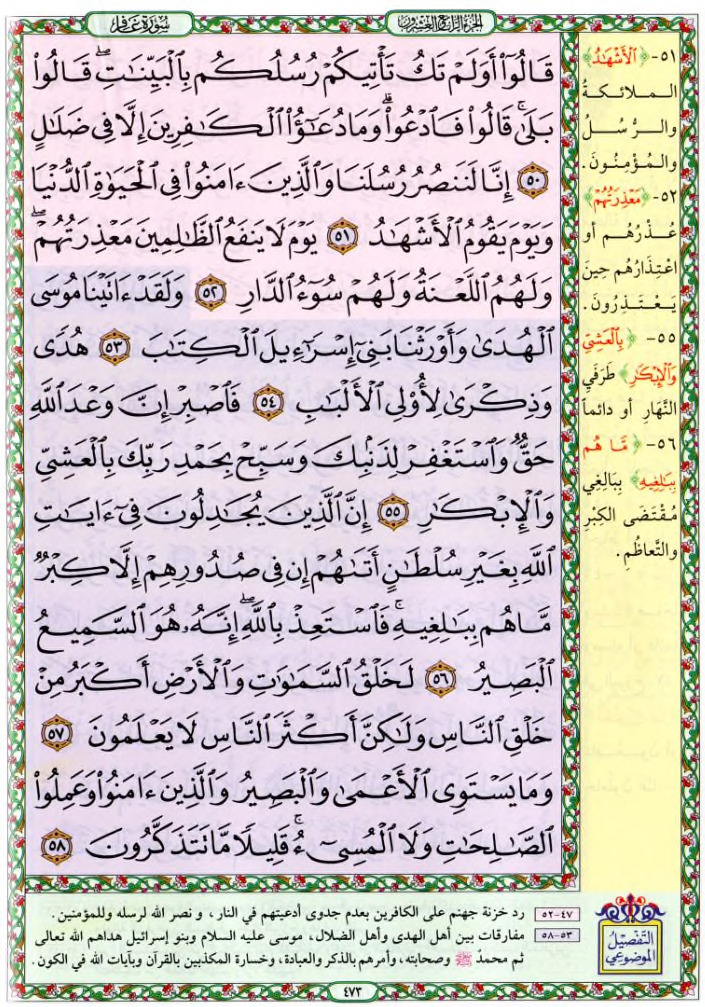 سُورَةُ غَافِرٍ
الجُزءُ الرَّابِعُ وَالعِشْرُونَ
قَالُوٓاْ أَوَلَمۡ تَكُ تَأۡتِيكُمۡ رُسُلُكُم بِٱلۡبَيِّنَٰتِۖ قَالُواْ
بَلَىٰۚ قَالُواْ فَٱدۡعُواْۗ وَمَا دُعَٰٓؤُاْ ٱلۡكَٰفِرِينَ إِلَّا فِي ضَلَٰلٍ
٥٠ إِنَّا لَنَنصُرُ رُسُلَنَا وَٱلَّذِينَ ءَامَنُواْ فِي ٱلۡحَيَوٰةِ ٱلدُّنۡيَا
وَيَوۡمَ يَقُومُ ٱلۡأَشۡهَٰدُ ٥١ يَوۡمَ لَا يَنفَعُ ٱلظَّٰلِمِينَ مَعۡذِرَتُهُمۡۖ
وَلَهُمُ ٱللَّعۡنَةُ وَلَهُمۡ سُوٓءُ ٱلدَّارِ ٥٢ وَلَقَدۡ ءَاتَيۡنَا مُوسَى
ٱلۡهُدَىٰ وَأَوۡرَثۡنَا بَنِيٓ إِسۡرَٰٓءِيلَ ٱلۡكِتَٰبَ ٥٣ هُدٗى
وَذِكۡرَىٰ لِأُوْلِي ٱلۡأَلۡبَٰبِ ٥٤ فَٱصۡبِرۡ إِنَّ وَعۡدَ ٱللَّهِ
حَقّٞ وَٱسۡتَغۡفِرۡ لِذَنۢبِكَ وَسَبِّحۡ بِحَمۡدِ رَبِّكَ بِٱلۡعَشِيِّ
وَٱلۡإِبۡكَٰرِ ٥٥ إِنَّ ٱلَّذِينَ يُجَٰدِلُونَ فِيٓ ءَايَٰتِ
ٱللَّهِ بِغَيۡرِ سُلۡطَٰنٍ أَتَىٰهُمۡ إِن فِي صُدُورِهِمۡ إِلَّا كِبۡرٞ
مَّا هُم بِبَٰلِغِيهِۚ فَٱسۡتَعِذۡ بِٱللَّهِۖ إِنَّهُۥ هُوَ ٱلسَّمِيعُ
ٱلۡبَصِيرُ ٥٦ لَخَلۡقُ ٱلسَّمَٰوَٰتِ وَٱلۡأَرۡضِ أَكۡبَرُ مِنۡ
خَلۡقِ ٱلنَّاسِ وَلَٰكِنَّ أَكۡثَرَ ٱلنَّاسِ لَا يَعۡلَمُونَ ٥٧
وَمَا يَسۡتَوِي ٱلۡأَعۡمَىٰ وَٱلۡبَصِيرُ وَٱلَّذِينَ ءَامَنُواْ وَعَمِلُواْ
ٱلصَّٰلِحَٰتِ وَلَا ٱلۡمُسِيٓءُۚ قَلِيلٗا مَّا تَتَذَكَّرُونَ ٥٨
٥١- ﴿الأَشْهَادُ﴾
الملائكةُ
والرُّسُلُ
والمُؤْمِنُونَ.
٥٢- ﴿مَعْذِرَتُهُمْ﴾
عُذْرُهُم أو
اعْتِذَارُهُم حِينَ
يَعْتَذِرُونَ.
٥٥- ﴿بِالْعَشِيِّ
وَالْإِبْكَارِ﴾ طَرَفَي
النَّهَارِ أو دائماً
٥٦- ﴿مَّا هُم
بِبَالِغِيهِ﴾ بِبَالِغِي
مُقْتَضَى الكِبْرِ
والتَّعاظُمِ.
التَّفْصِيلُ
المَوْضُوعِي
٤٧-٥٢ رد خزنة جهنم على الكافرين بعدم جدوى أدعيتهم في النار، و نصر الله لرسله وللمؤمنين.
٥٣-٥٨ مفارقات بين أهل الهدى وأهل الضلال، موسى عليه السلام وبنو إسرائيل هداهم الله تعالى
ثم محمدٌ ﷺ وصحابته، وأمرهم بالذكر والعبادة، وخسارة المكذبين بالقرآن وبآيات الله في الكون.
٤٧٣